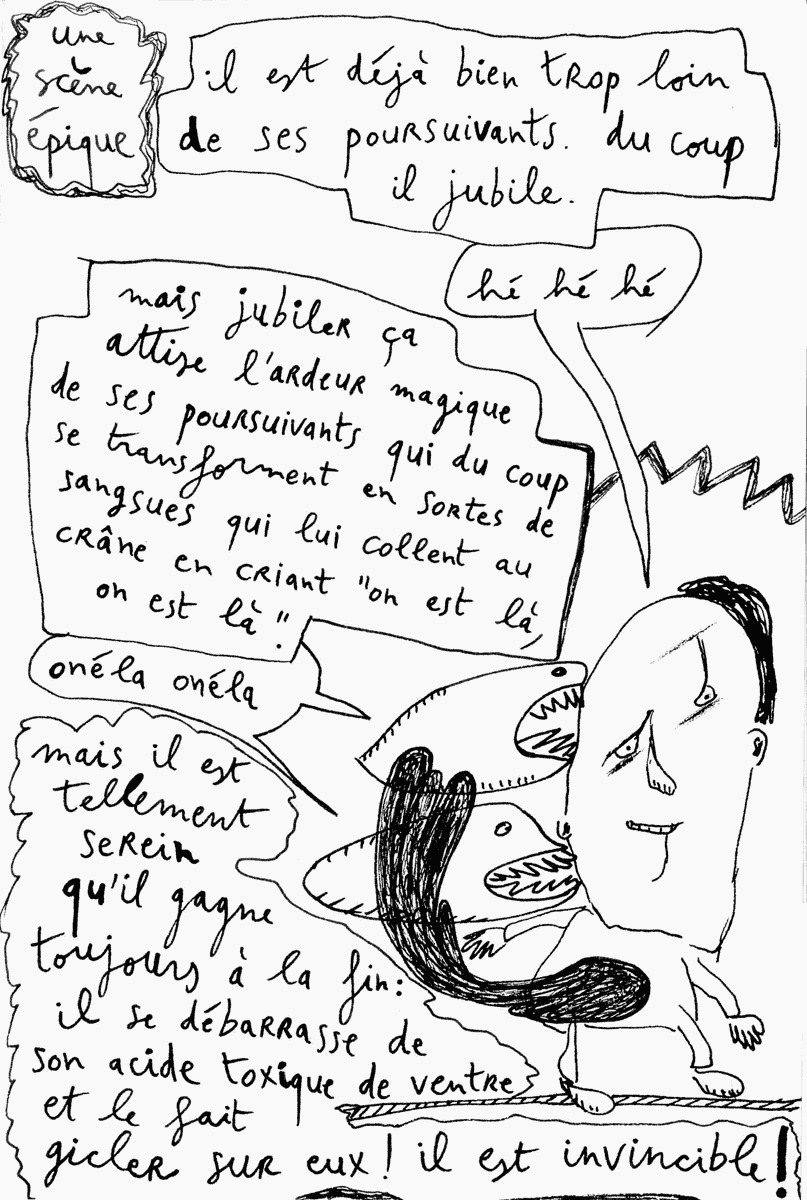 une
scène
épique
il est déjà bien trop loin
de ses poursuivants. du coup
il jubile.
hé hé hé
mais jubiler ça
attise l'ardeur magique
de ses poursuivants qui du coup
se transforment en sortes de
sangsues qui lui collent au
crâne en criant "on est là,
on est là".
onéla onéla
mais il est
tellement
serein
qu'il gagne
toujours à la fin:
il se débarrasse de
son acide toxique de ventre
et le fait
gicler sur eux! il est invincible!